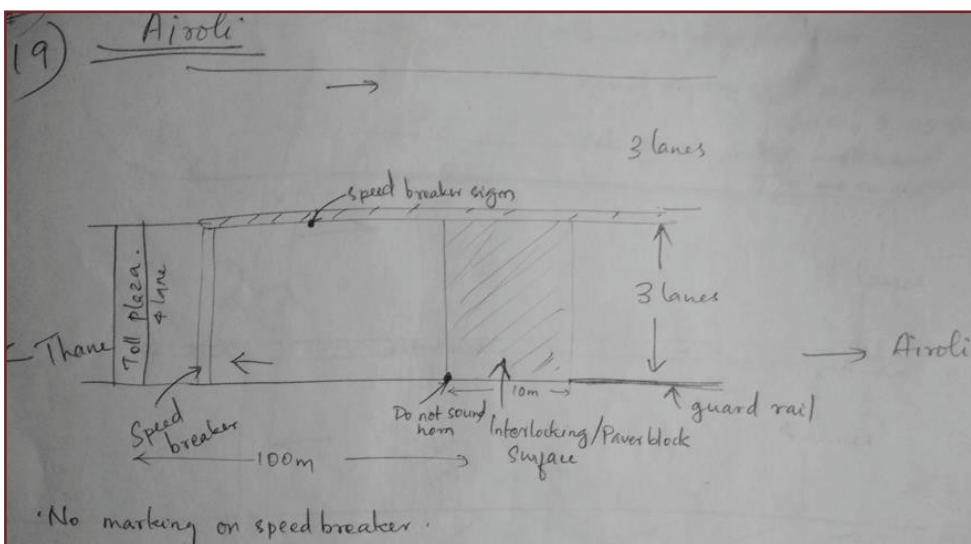 19) Airoli
3 lanes
speed breaker sign
Toll plaza.
4 lane
3 lanes
Thane
Airoli
Speed breaker
Do not sound
horn
10m
Interlocking/Paver block
Surface
guard rail
100m
No marking on speed breaker.